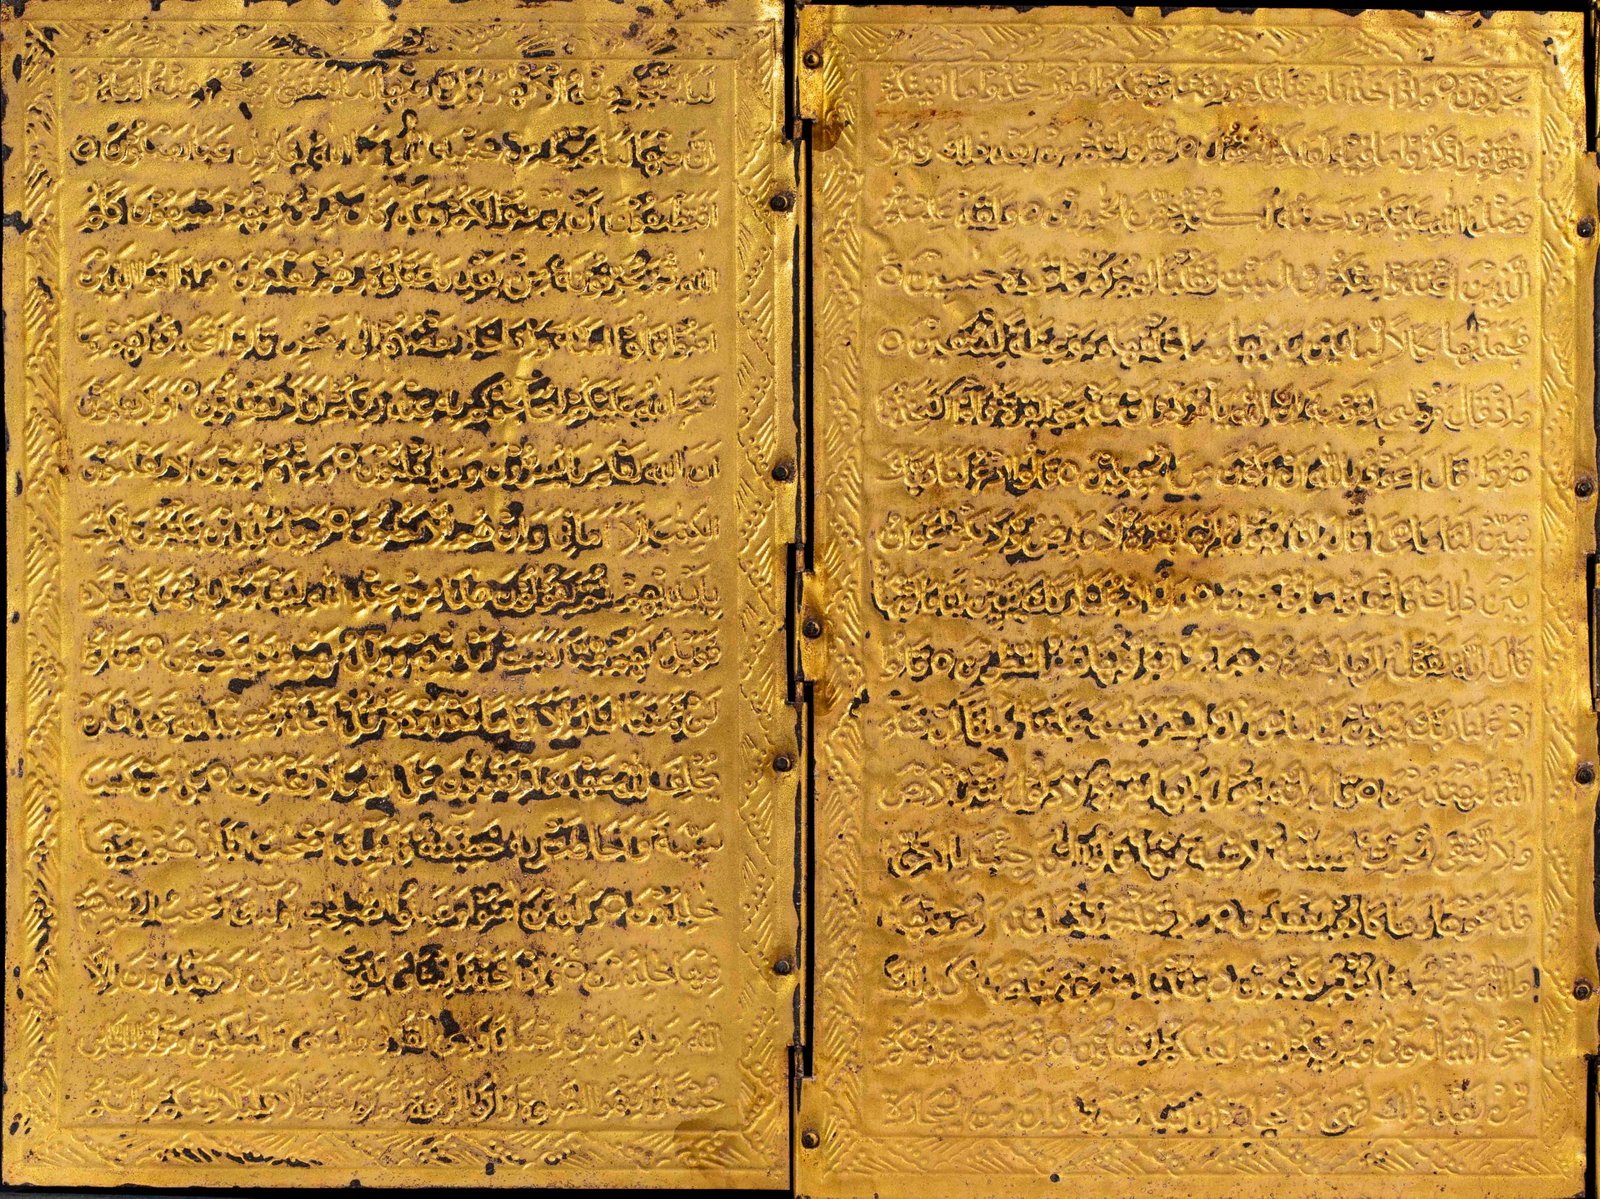 يحزنون ○ واذ اخذنا ميثاقكم ورفعنا فوقكم الطور خذوا ما اتينكم
بقوة واذكروا ما فيه لعلكم تتقون ○ ثم توليتم من بعد ذلك فلولا
فضل الله عليكم ورحمته لكنتم من الخسرين ○ ولقد علمتم
الذين اعتدوا منكم في السبت فقلنا لهم كونوا قردة خسئين ○
فجعلنها نكالا لما بين يديها وما خلفها وموعظة للمتقين ○
واذ قال موسى لقومه ان الله يامركم ان تذبحوا بقرة قالوا اتتخذنا
هزوا قال اعوذ بالله ان اكون من الجهلين ○ قالوا ادع لنا ربك
يبين لنا ما هي قال انه يقول انها بقرة لا فارض ولا بكر عوان
بين ذلك فافعلوا ما تؤمرون ○ قالوا ادع لنا ربك يبين لنا ما لونها
قال انه يقول انها بقرة صفراء فاقع لونها تسر النظرين ○ قالوا
ادع لنا ربك يبين لنا ما هي ان البقر تشبه علينا وانا ان شاء
الله لمهتدون ○ قال انه يقول انها بقرة لا ذلول تثير الارض
ولا تسقي الحرث مسلمة لا شية فيها قالوا الن جئت بالحق
فذبحوها وما كادوا يفعلون ○ واذ قتلتم نفسا فادرءتم فيها
والله مخرج ما كنتم تكتمون ○ فقلنا اضربوه ببعضها كذلك
يحي الله الموتى ويريكم ايته لعلكم تعقلون ○ ثم قست قلوبكم
من بعد ذلك فهي كالحجارة او اشد قسوة وان من الحجارة
لما يتفجر منه الانهر وان منها لما يشقق فيخرج منه الماء و
ان منها لما يهبط من خشية الله وما الله بغافل عما تعملون ○
افتطمعون ان يؤمنوا لكم وقد كان فريق منهم يسمعون كلم
الله ثم يحرفونه من بعد ما عقلوه وهم يعلمون ○ واذا لقوا الذين
امنوا قالوا امنا واذا خلا بعضهم الى بعض قالوا اتحدثونهم بما
فتح الله عليكم ليحاجوكم به عند ربكم افلا تعقلون ○ اولا يعلمون
ان الله يعلم ما يسرون وما يعلنون ○ ومنهم اميون لا يعلمون
الكتب الا اماني وان هم الا يظنون ○ فويل للذين يكتبون الكتب
بايديهم ثم يقولون هذا من عند الله ليشتروا به ثمنا قليلا
فويل لهم مما كتبت ايديهم وويل لهم مما يكسبون ○ وقالوا
لن تمسنا النار الا اياما معدودة قل اتخذتم عند الله عهدا فلن
يخلف الله عهده ام تقولون على الله ما لا تعلمون ○ بلى من كسب
سيئة واحاطت به خطيئته فاولئك اصحب النار هم فيها
خلدون ○ والذين امنوا وعملوا الصلحت اولئك اصحب الجنة هم
فيها خلدون ○ واذ اخذنا ميثاق بني اسرائيل لا تعبدون الا
الله وبالوالدين احسانا وذي القربى واليتمى والمسكين وقولوا للناس
حسنا واقيموا الصلوة واتوا الزكوة ثم توليتم الا قليلا منكم وانتم